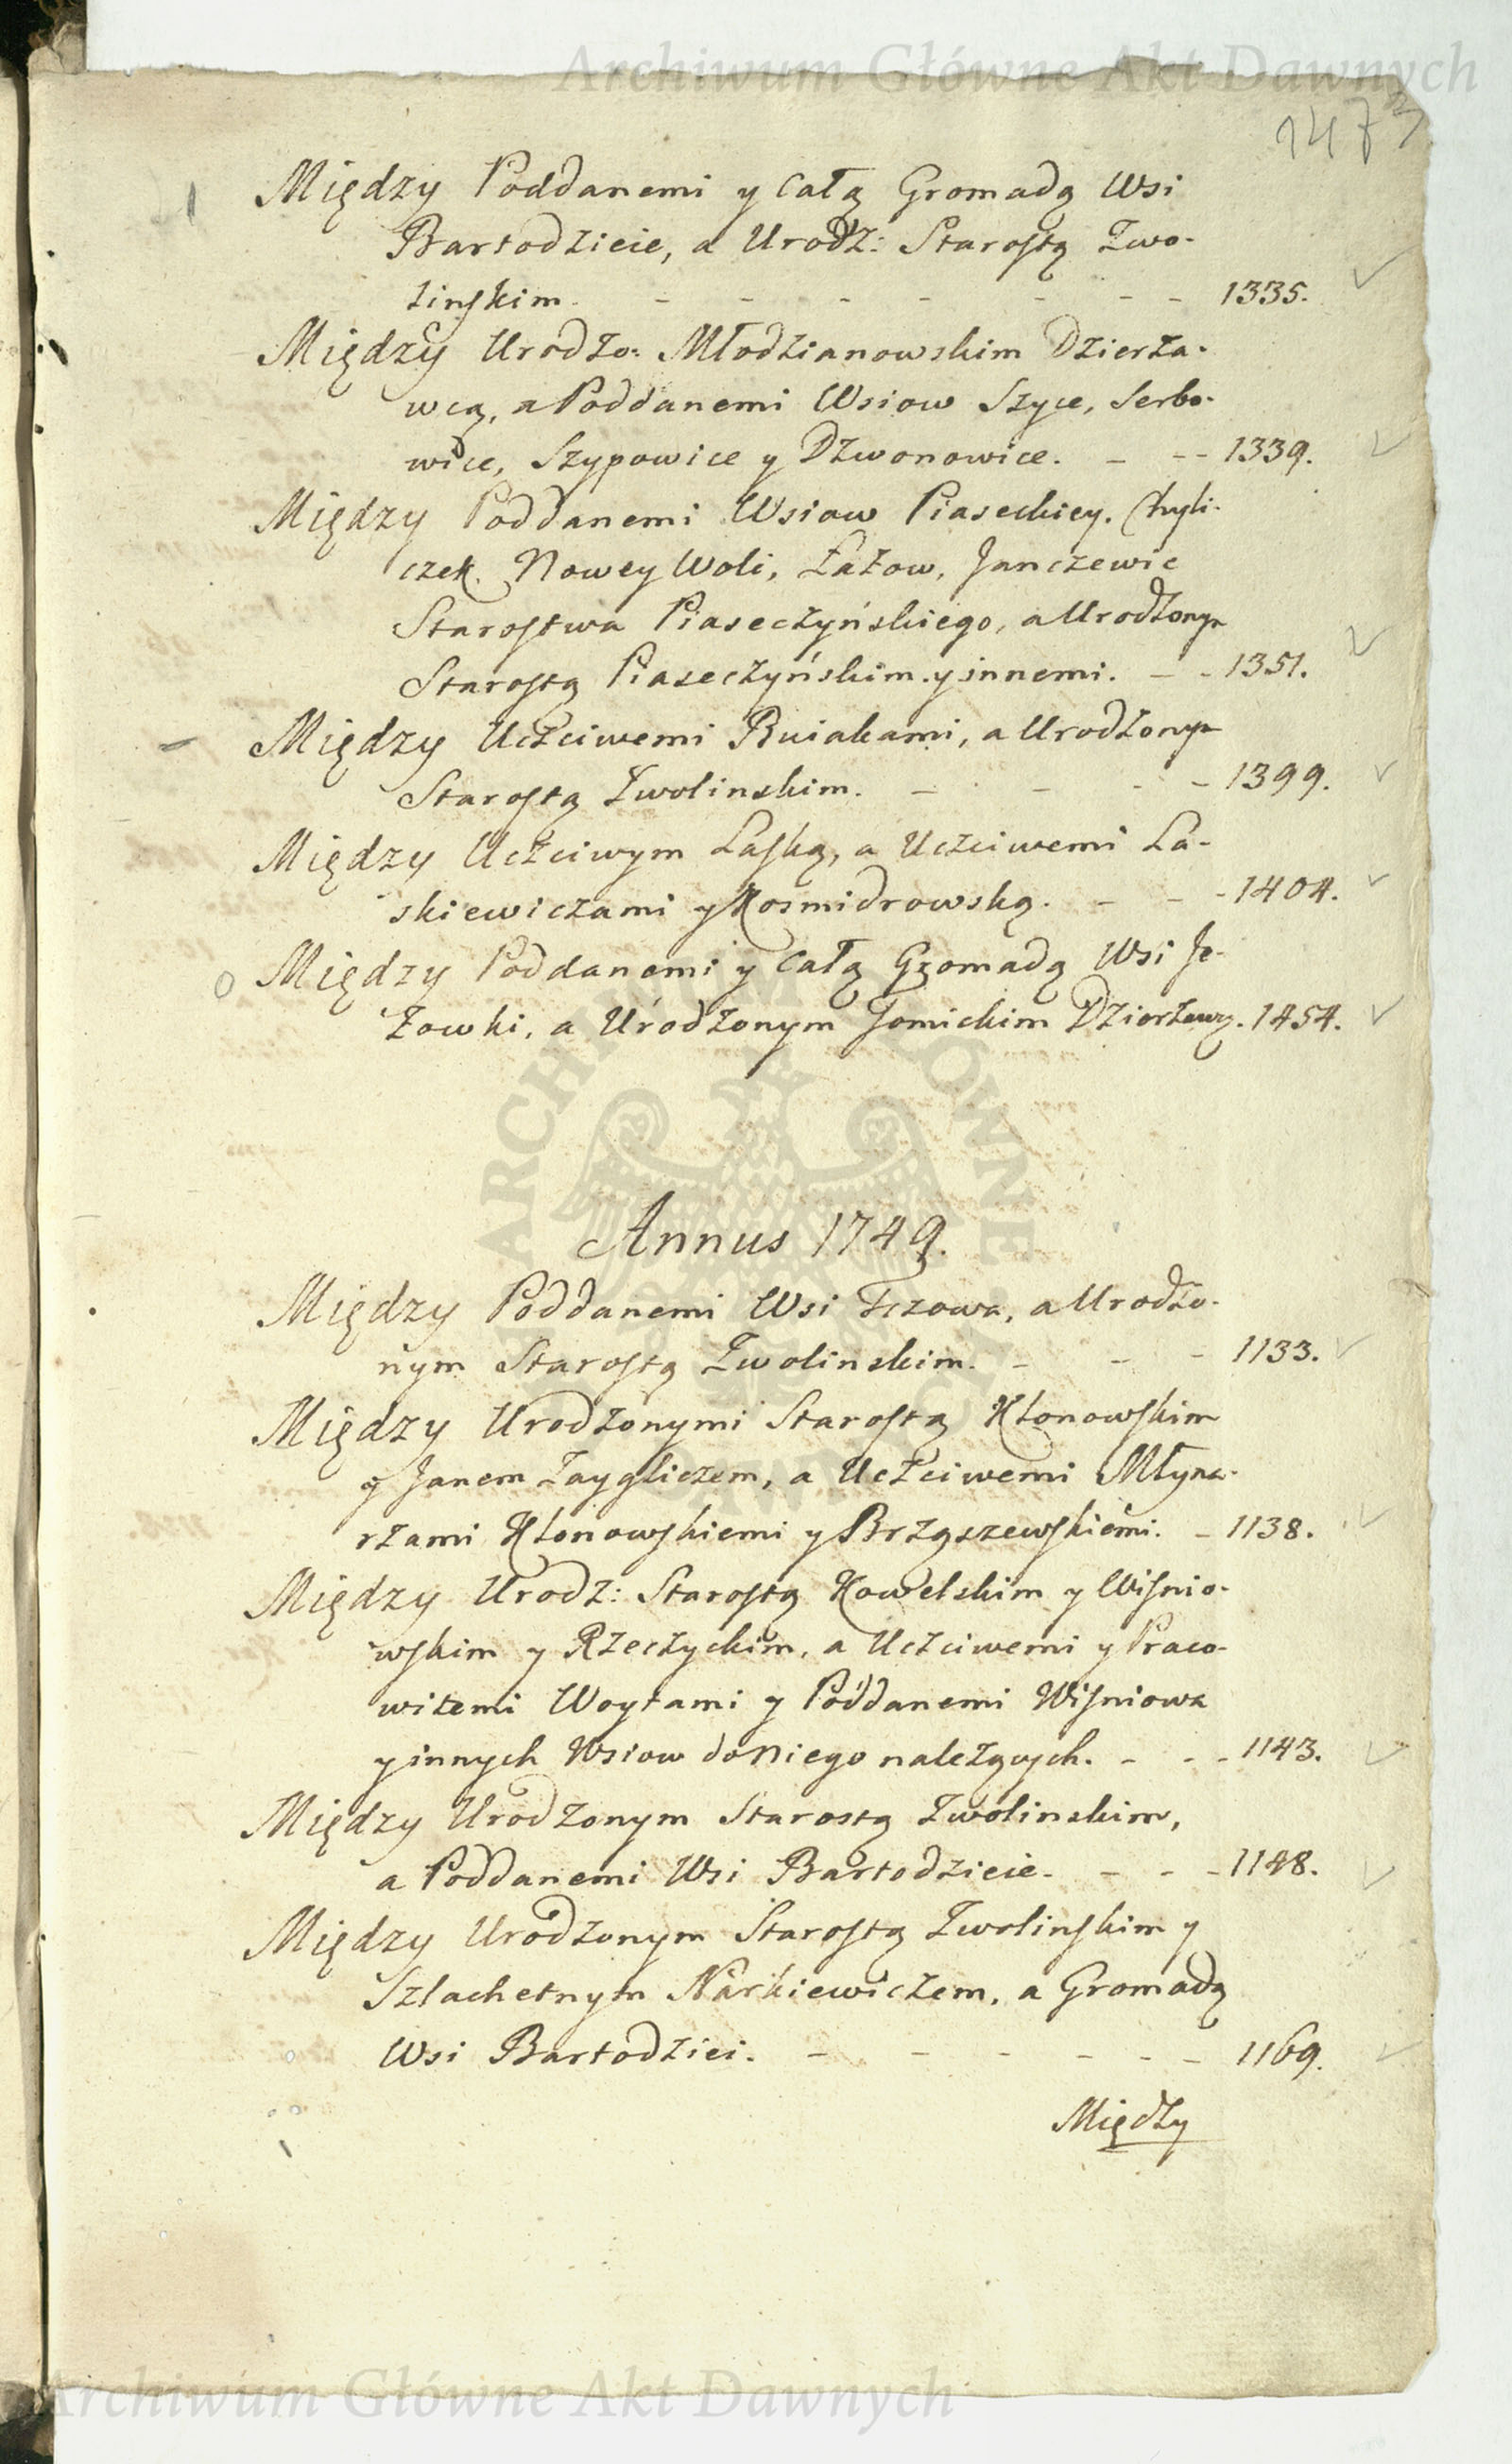 Archiwum Główne Akt Dawnych
1473
Między Poddanemi y całą Gromadą Wsi
Bartodzieie, a Urodz: Starostą Zwo-
linskim. - - - - - - - 1335.
Między Urodzo: Młodzianowskim Dzierża-
wcą, a Poddanemi Wsiow Szyce, Serbo-
wice, Szypowice y Dzwonowice. - - - 1339.
Między Poddanemi Wsiow Piaseckiey, Chyli-
czek, Nowey Woli, Łazow, Janczewic
Starostwa Piaseczyńskiego, a Urodzonym
Starostą Piaseczyńskim y innemi. - - 1351.
Między Uczciwemi Buiakami, a Urodzonym
Starostą Zwolinskim. - - - - 1399.
Między Uczciwym Laską, a Uczciwemi La-
skiewiczami y Kosmidrowską. - - - 1404.
Między Poddanemi y całą Gromadą Wsi Je-
żowki, a Urodzonym Jomickim Dzierżawcą. 1454.
Annus 1749.
Między Poddanemi Wsi Tczowa, a Urodzo-
nym Starostą Zwolinskim. - - - 1133.
Między Urodzonymi Starostą Kłonowskim
y Janem Zaygliczem, a Uczciwemi Młyna-
rzami Kłonowskiemi y Brzgszewskiemi. - 1138.
Między Urodz: Starostą Kowelskim y Wisnio-
wskim y Rzeczyckim, a Uczciwemi y Praco-
witemi Woytami y Poddanemi Wisniowa
y innych Wsiow do Niego należących. - - - 1143.
Między Urodzonym Starostą Zwolinskim,
a Poddanemi Wsi Bartodzieie. - - - 1148.
Między Urodzonym Starostą Zwolinskim y
Szlachetnym Narkiewiczem, a Gromadą
Wsi Bartodziei. - - - - - - 1169.
Między
Archiwum Główne Akt Dawnych